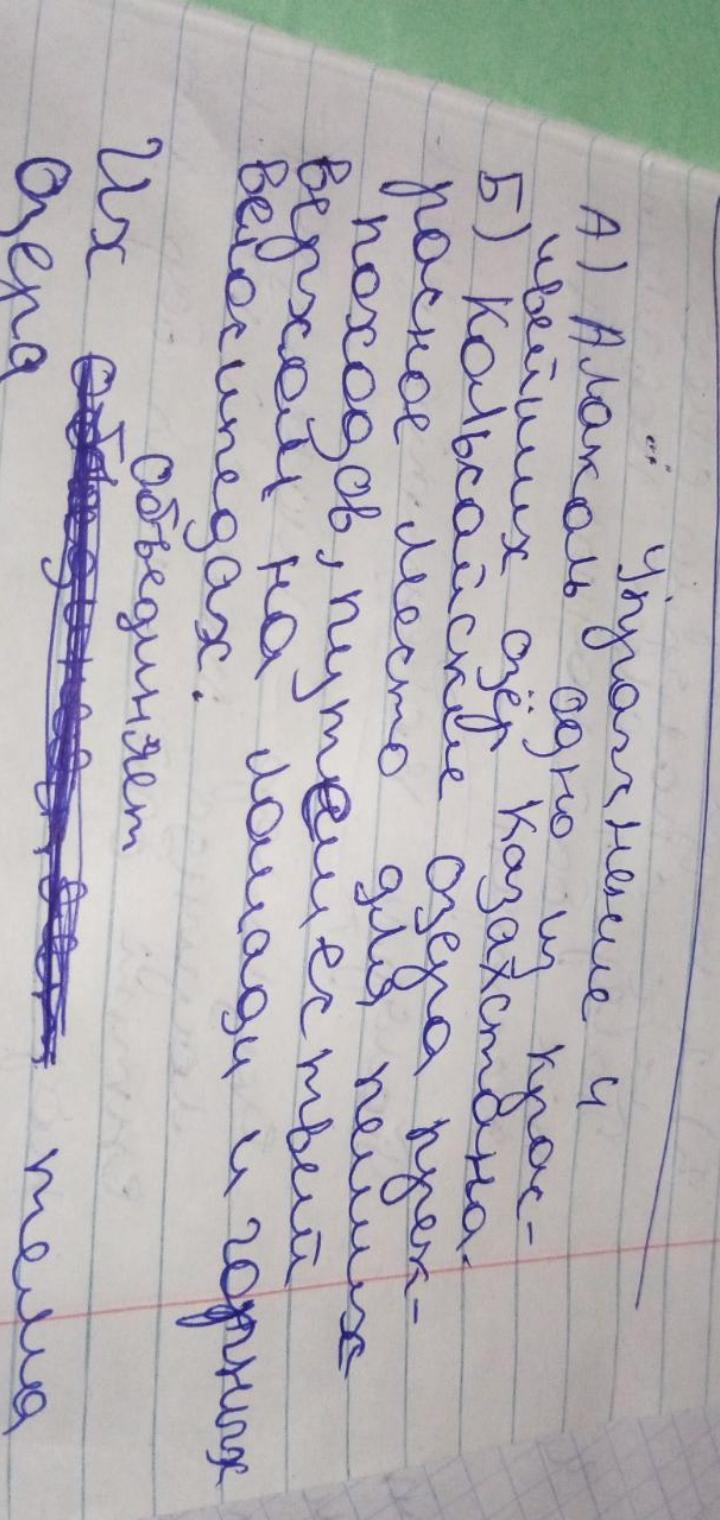 Упражнение 4
А) Алаколь одно из крас-
ивейших озёр Казахстана.
Б) Кольсайские озера прек-
расное место для пеших
походов, путешествий
верхом на лошади и горных
велосипедах.
Их объединяет тема
озера